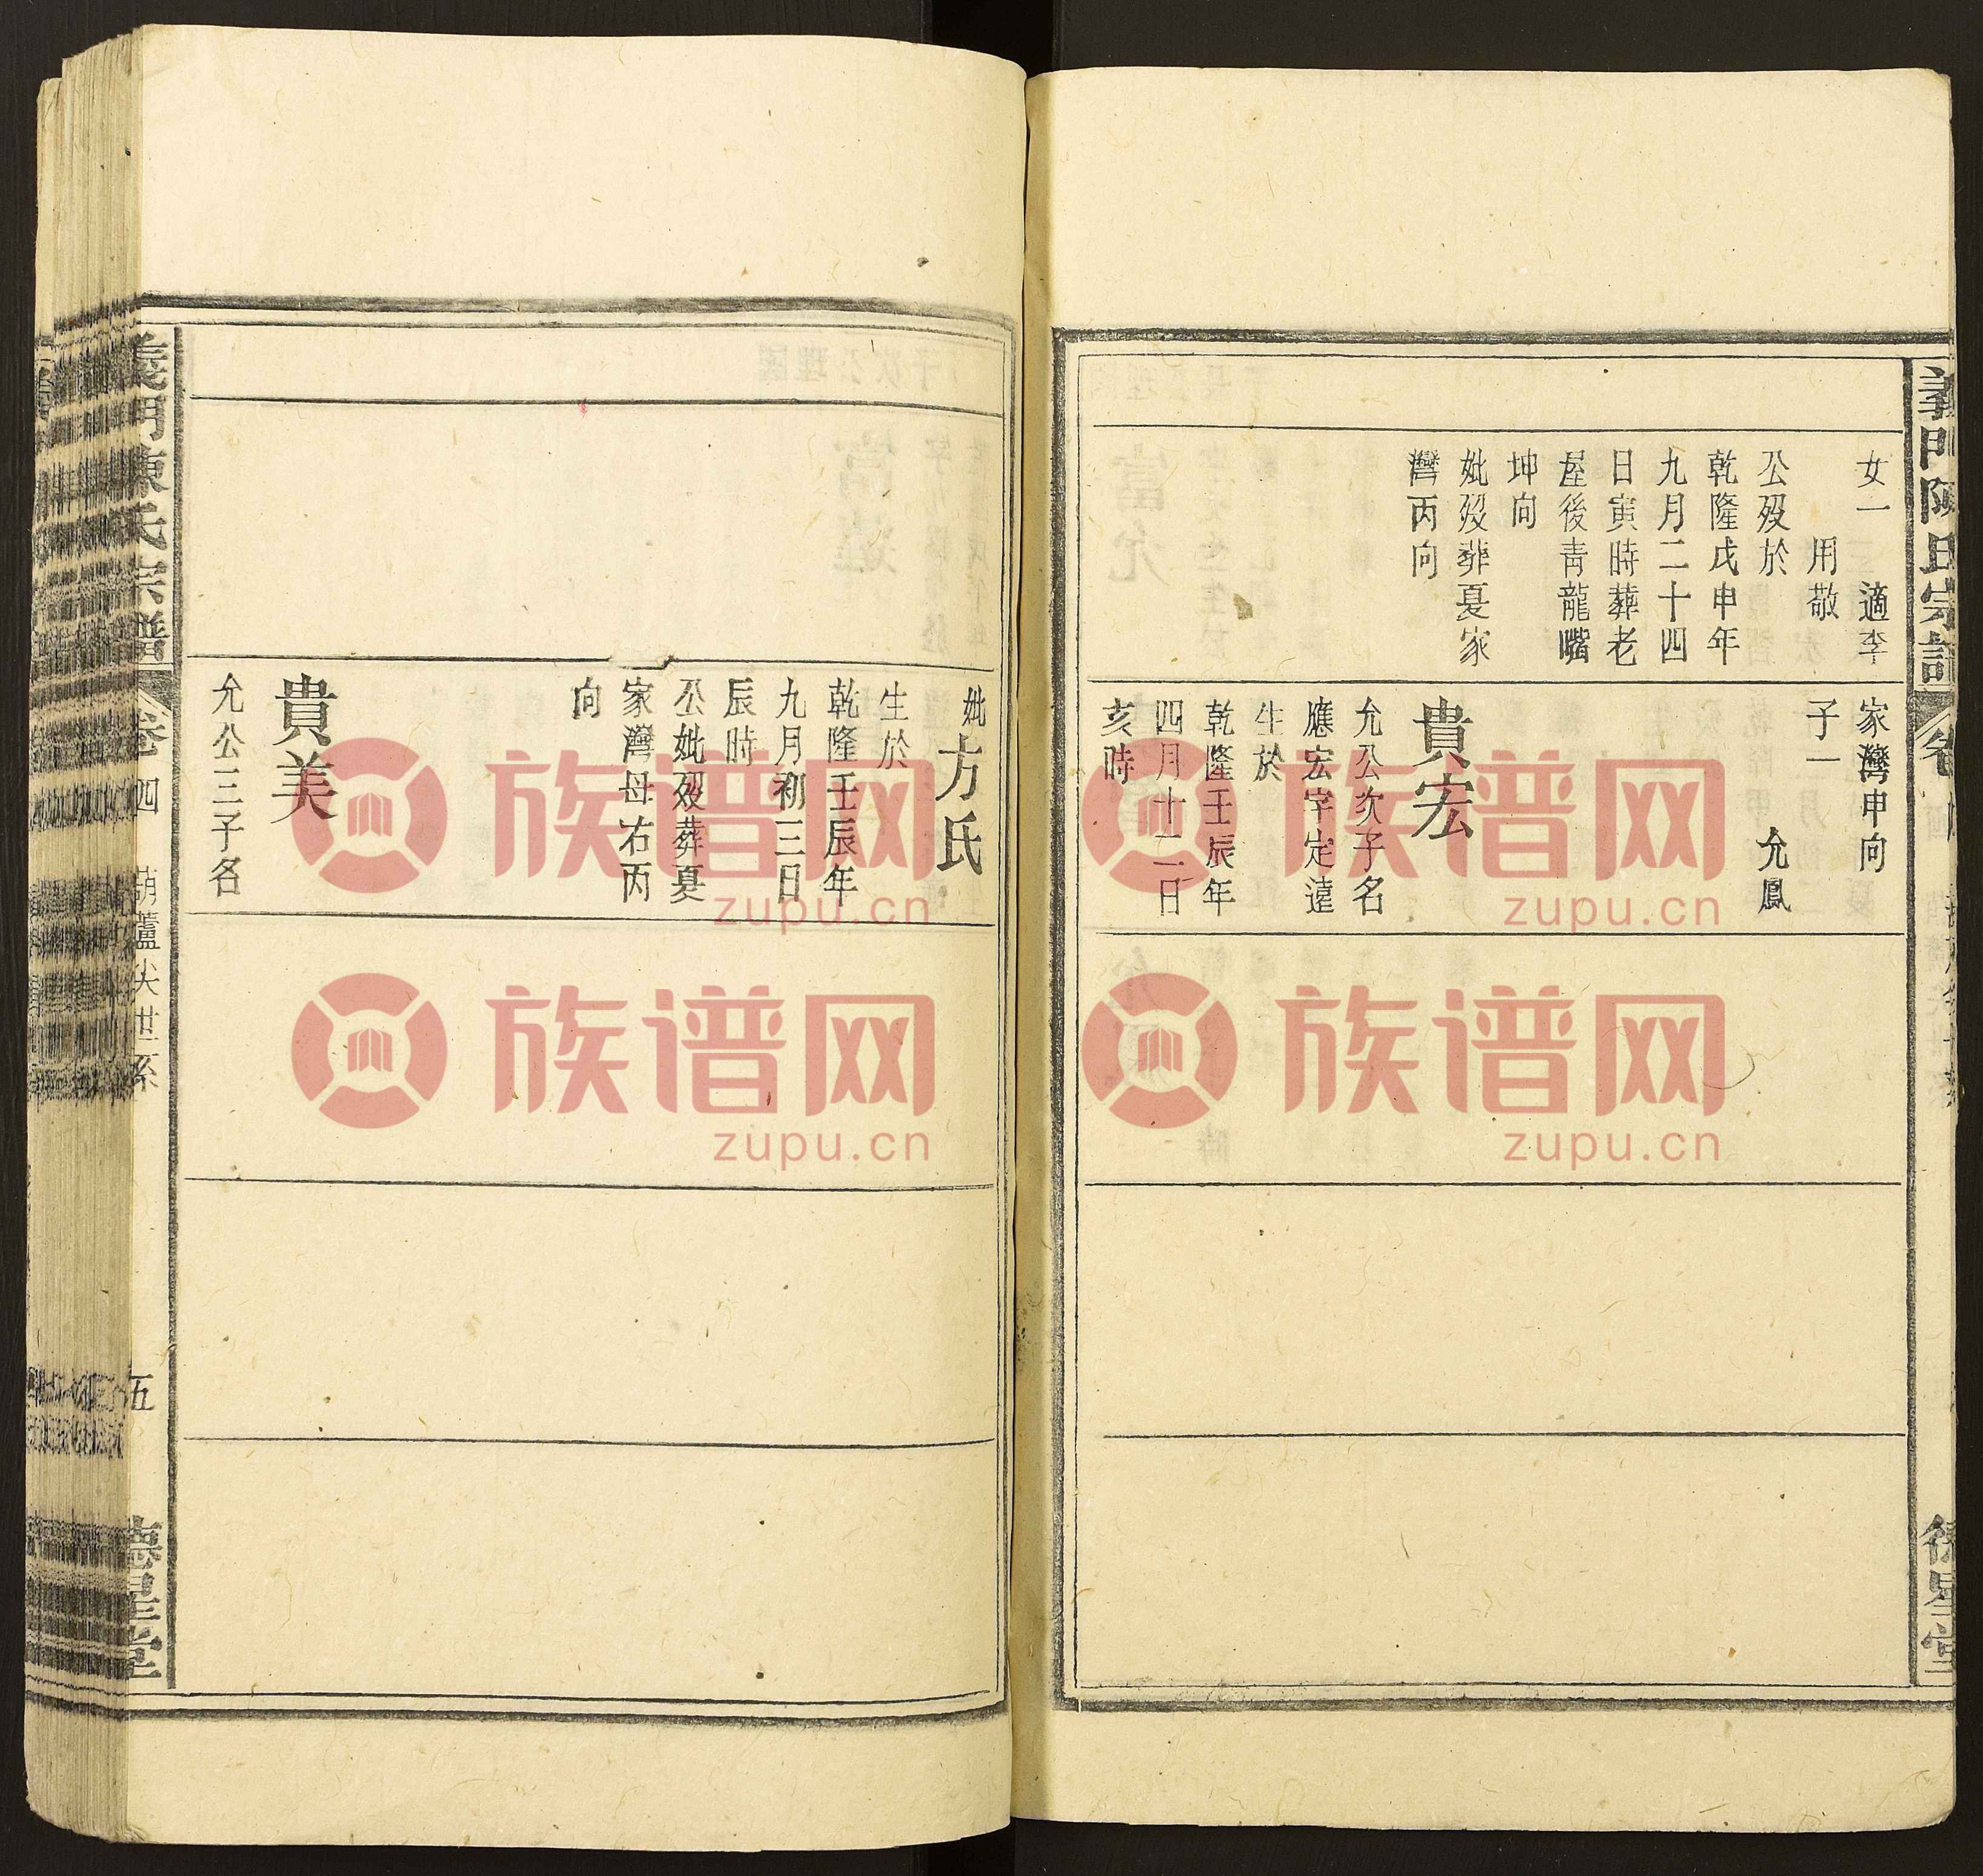 女一　適李
用敬
公歿於
乾隆戊申年
九月二十四
日寅時葬老
屋後青龍嘴
坤向
妣歿葬夏家
灣丙向
家灣申向
子一
允鳳
貴宏
允公次子名
應宏字定遠
生於
乾隆壬辰年
四月十二日
亥時
德星堂
妣方氏
生於
乾隆壬辰年
九月初三日
辰時
公妣歿葬夏
家灣母右丙
向
貴美
允公三子名
義門陳氏宗譜
卷四
葫蘆尖世系
五
德星堂
族谱网
zupu.cn
族谱网
zupu.cn
族谱网
zupu.cn
族谱网
zupu.cn